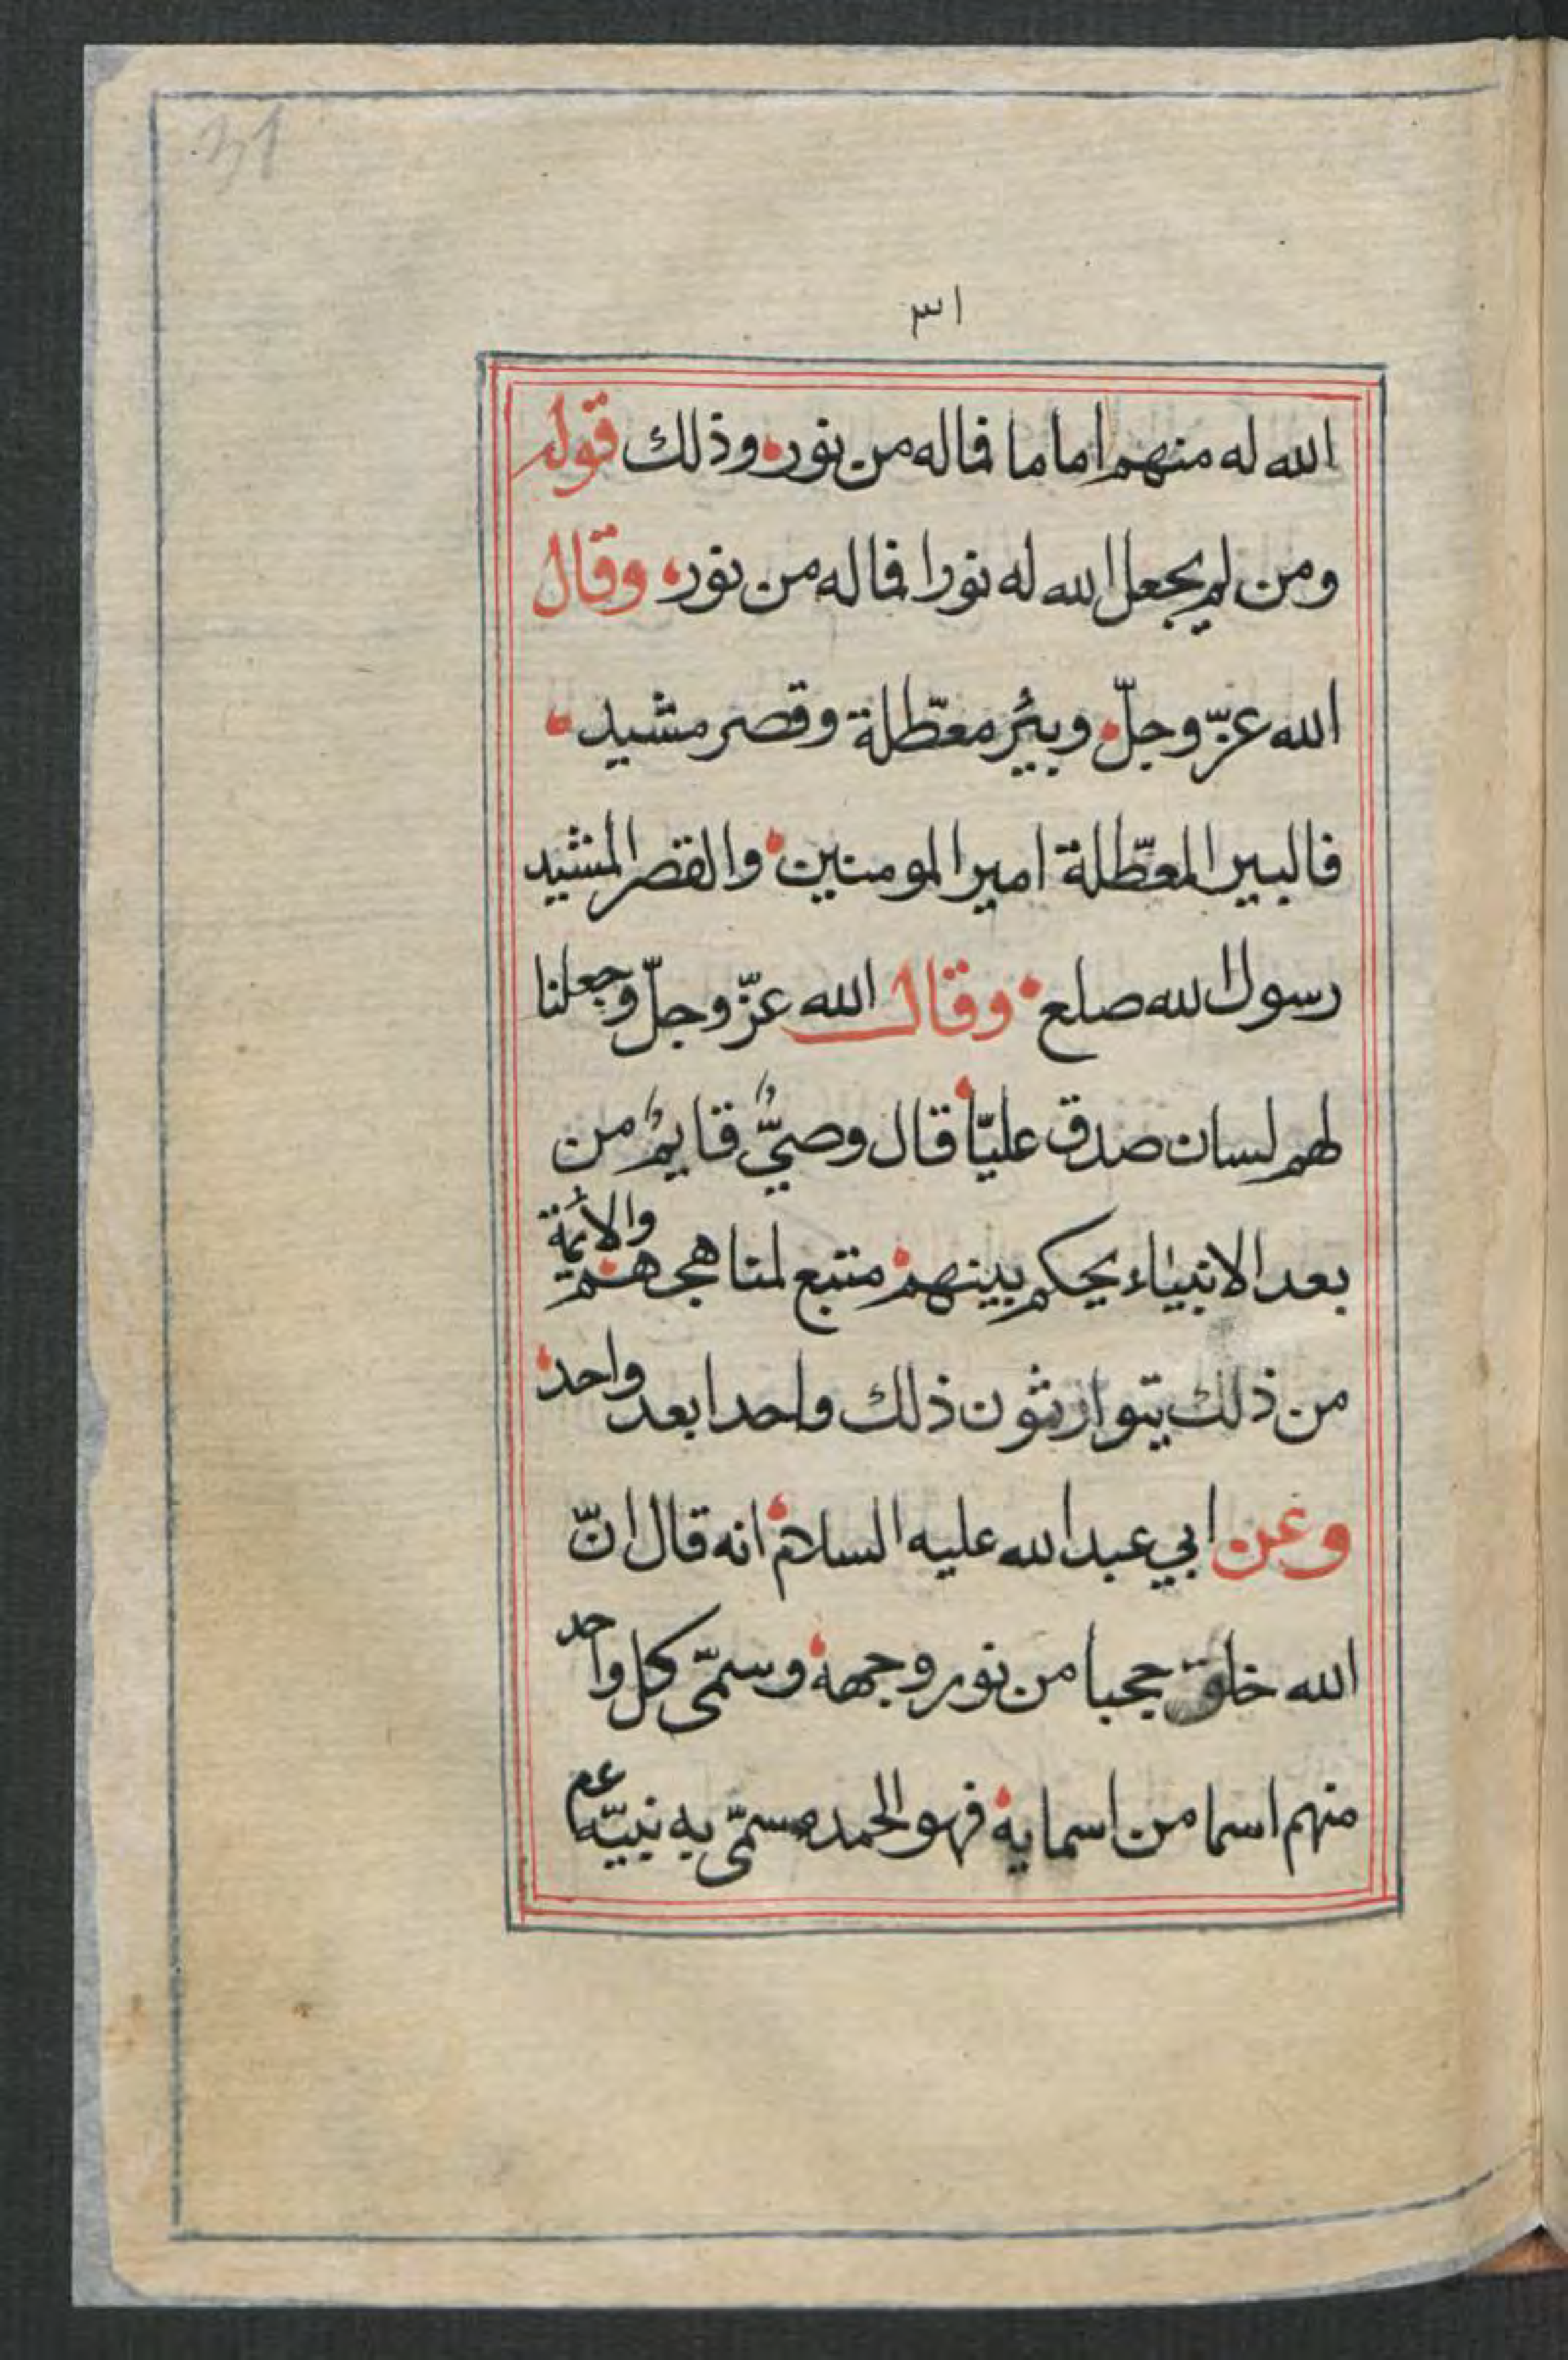 31
٣١
الله له منهم اماما فما له من نور وذلك قوله
ومن لم يجعل الله له نورا فما له من نور، وقال
الله عزّ وجلّ وبئير معطّلة وقصر مشيد
فالبير المعطّلة امير المومنين والقصر المشيد
رسول الله صلعم وقال الله عزّ وجلّ وجعلنا
لهم لسان صدق عليّا قال وصيٌّ قايمٌ من
بعد الانبياء يحكم بينهم متبع لمناهجهم والائمة
من ذلك يتوارثون ذلك واحدا بعد واحد
وعن ابي عبد الله عليه السلام انه قال انّ
الله خلق حجبا من نور وجهه وسمّى كل واحد
منهم اسما من اسمايه فهو الحمد مسمّى به نبيّه عم